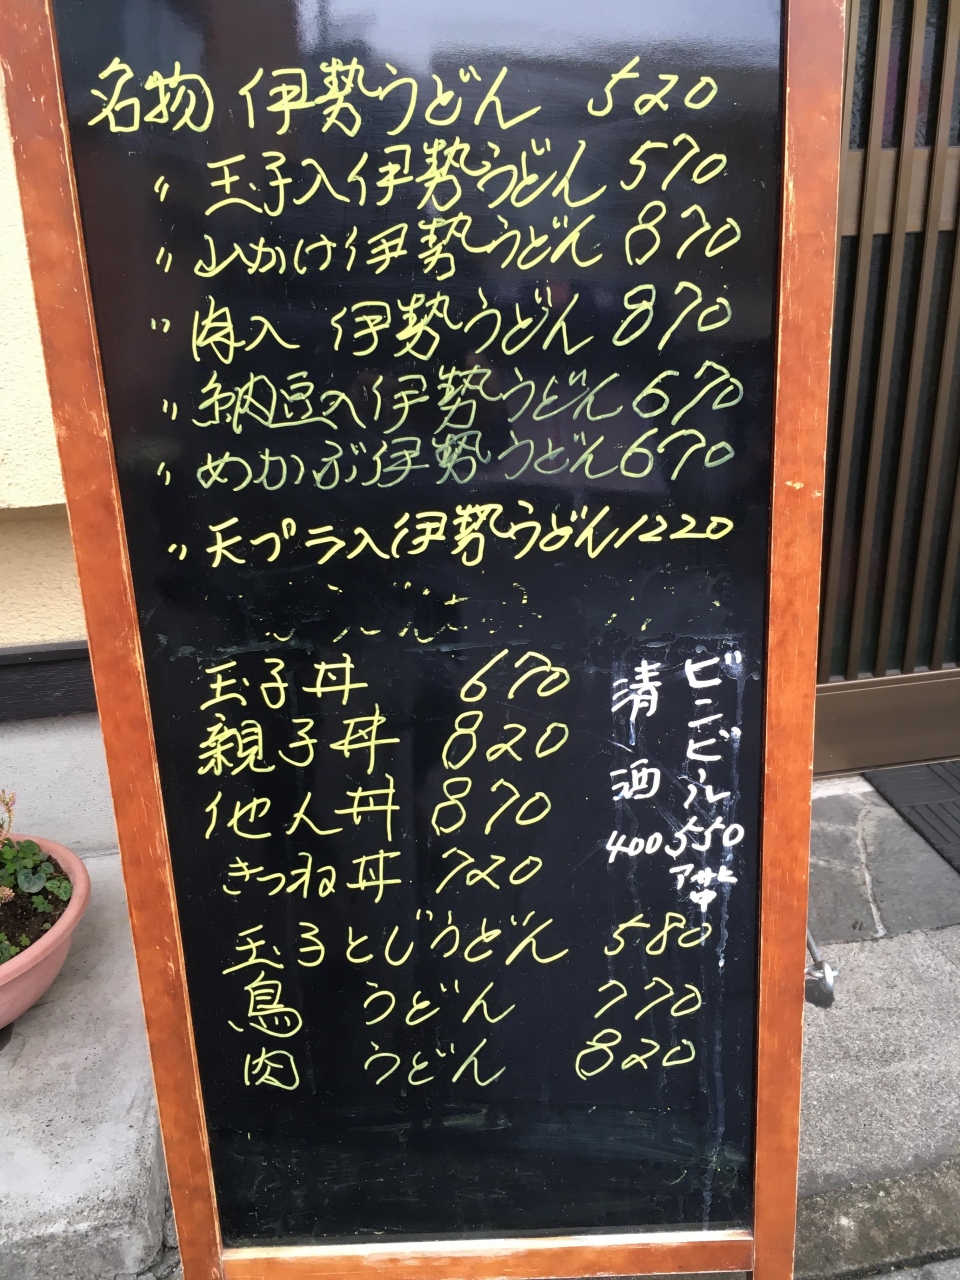 名物 伊勢うどん 520
〃 玉子入伊勢うどん 570
〃 山かけ伊勢うどん 870
〃 肉入 伊勢うどん 870
〃 納豆入伊勢うどん 670
〃 めかぶ伊勢うどん 670
〃 天プラ入伊勢うどん 1220
玉子丼 670
親子丼 820
他人丼 870
きつね丼 720
玉子とじうどん 580
鳥 うどん 770
肉 うどん 820
ビンビール 550 アサヒ 中
清酒 400